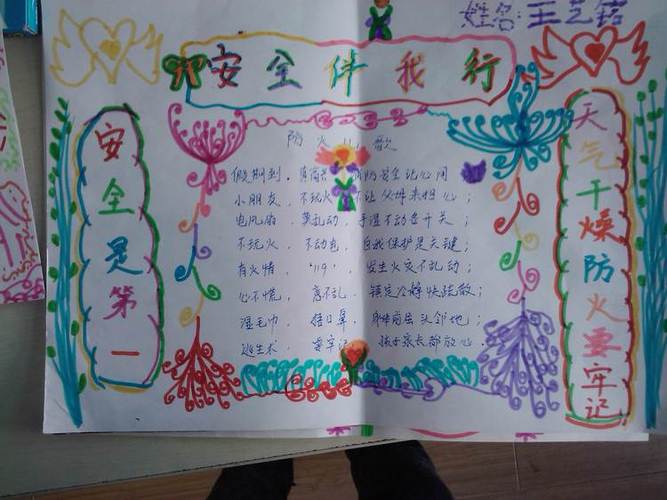 姓名:王艺铭
安全伴我行
安全是第一
防火儿歌
假期到,真高兴,消防安全记心间
小朋友,不玩火,不让父母来担心;
电风扇,莫乱动,手湿不动电开关;
不玩火,不动电,自我保护是关键;
有火情,“119”,发生火灾不乱动;
心不慌,意不乱,镇定冷静快疏散;
湿毛巾,捂口鼻,身体前屈头邻地;
逃生术,要牢记,孩子家长都放心.
天气干燥防火要牢记